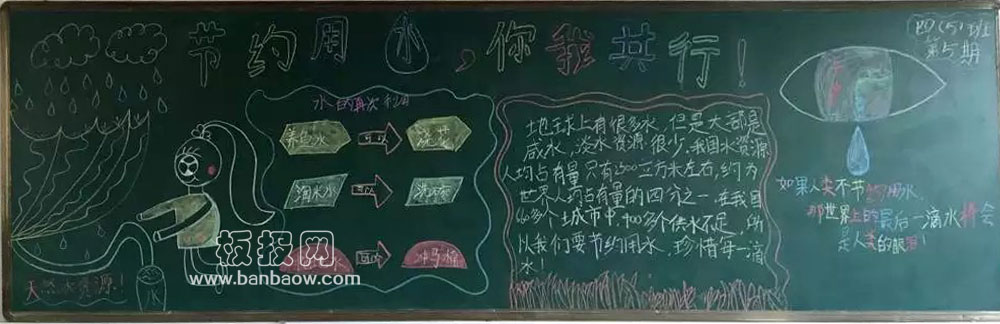 节约用水，你我共行！
四（5）班
第5期
水的再次利用
养鱼水 可以 浇花
淘米水 可以 洗衣
可以 冲马桶
地球上有很多水，但是大部是
咸水，淡水资源很少，我国水资源
人均占有量只有2300立方米左右，约为
世界人均占有量的四分之一，在我国
600多个城市中，400多个供水不足，所
以我们要节约用水，珍惜每一滴
水！
如果人类不节约用水，
那世界上的最后一滴水将会
是人类的眼泪！
天然水资源！
水
板报网
www.banbaow.com